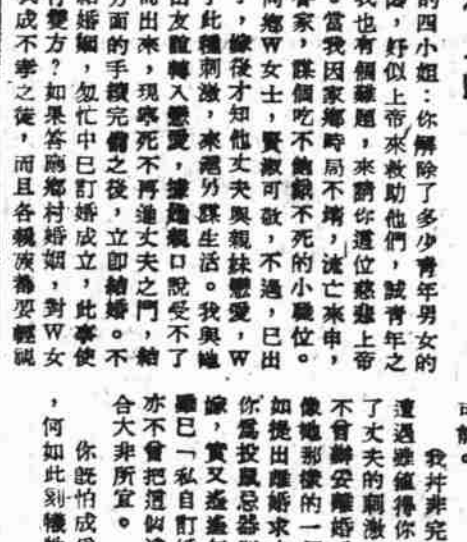 的四小姐：你解除了多少青年男女的
，好似上帝來救助他們，誠青年之
我也有個難題，來請你這位慈悲上帝
。當我因家鄉時局不靖，流亡來申，
家，謀個吃不飽餓不死的小職位。
同鄉W女士，賢淑可敬，不過，已出
，嫁後才知他丈夫與親妹戀愛，W
了此種刺激，來滬另謀生活。我與她
由友誼轉入戀愛，據她親口說受不了
而出來，現寧死不再進丈夫之門，結
方面的手續完備之後，立卽結婚。不
結婚姻，匆忙中已訂婚成立，此事使
雙方？如果答應鄉村婚姻，對W女
成不孝之徒，而且各親戚都要輕視
可能。
我幷非完
遭遇雖值得你
了丈夫的刺激
不曾辦妥離婚
像她那樣的一
如提出離婚求
你爲投鼠忌器
嫁，實又遙遙
雖已「私自訂
亦不曾把這個
合大非所宜。
你旣怕成
，何如此刻犧